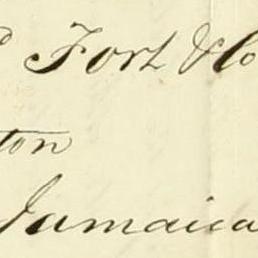 Fort & Co
ton
Jamaica